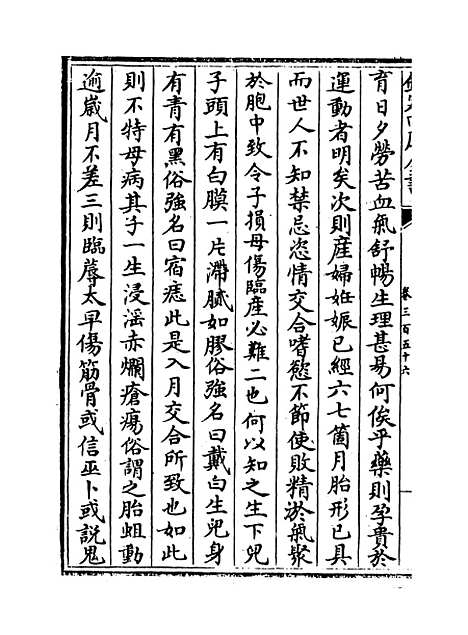 欽定四庫全書
卷三百五十六
育日夕勞苦血氣舒暢生理甚易何俟乎藥則孕貴於
運動者明矣次則産婦妊娠已經六七箇月胎形已具
而世人不知禁忌恣情交合嗜慾不節使敗精淤氣聚
於胞中致令子損母傷臨産必難二也何以知之生下兒
子頭上有白膜一片滯膩如膠俗強名曰戴白生兒身
有青有黑俗強名曰宿痣此是入月交合所致也如此
則不特母病其子一生浸滛赤爛瘡瘍俗謂之胎蛆動
逾嵗月不差三則臨蓐太早傷筋骨或信巫卜或説鬼